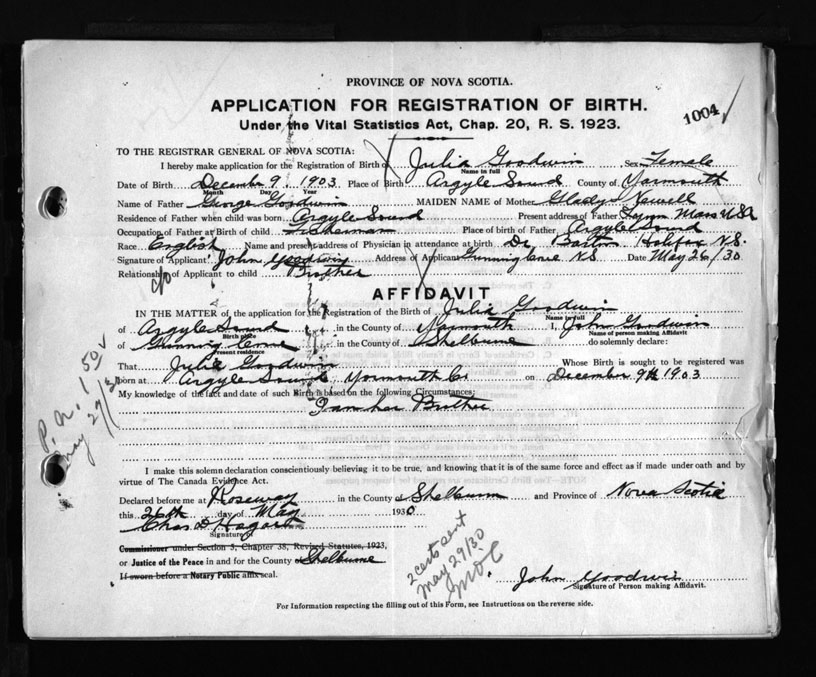 PROVINCE OF NOVA SCOTIA.
APPLICATION FOR REGISTRATION OF BIRTH.
1004
Under the Vital Statistics Act, Chap. 20, R. S. 1923.
TO THE REGISTRAR GENERAL OF NOVA SCOTIA:
I hereby make application for the Registration of Birth of Julia Goodwin Sex Female
Name in full
Date of Birth December 9. 1903 Place of Birth Argyle Sound County of Yarmouth
Month Day Year
Name of Father George Goodwin MAIDEN NAME of Mother Gladys
Residence of Father when child was born Argyle Sound Present address of Father Lynn Mass U.S.A
Occupation of Father at Birth of child Fisherman Place of birth of Father Argyle Sound
Race English Name and present address of Physician in attendance at birth Dr. Barton Halifax N.S.
Signature of Applicant John Goodwin Address of Applicant Gunning Cove N.S Date May 26/30
Relationship of Applicant to child Brother
AFFIDAVIT
IN THE MATTER of the application for the Registration of the Birth of Julia Goodwin
Name in full
of Argyle Sound in the County of Yarmouth I, John Goodwin
Birth place Name of person making Affidavit
of Gunning Cove in the County of Shelburne do solemnly declare:
Present residence
That Julia Goodwin Whose Birth is sought to be registered was
born at Argyle Sound, Yarmouth Co on December 9th 1903
My knowledge of the fact and date of such Birth is based on the following Circumstances:
I am her Brother
P.N. 1.50
May 29/30
I make this solemn declaration conscientiously believing it to be true, and knowing that it is of the same force and effect as if made under oath and by
virtue of The Canada Evidence Act.
Declared before me at Roseway in the County of Shelburne and Province of Nova Scotia
this 26th day of May 1930
Chas D Hogart
Signature of
Commissioner under Section 5, Chapter 38, Revised Statutes, 1923,
or Justice of the Peace in and for the County of Shelburne
If sworn before a Notary Public affix seal.
2 certs sent
May 29/30
John Goodwin
Signature of Person making Affidavit.
For Information respecting the filling out of this Form, see Instructions on the reverse side.